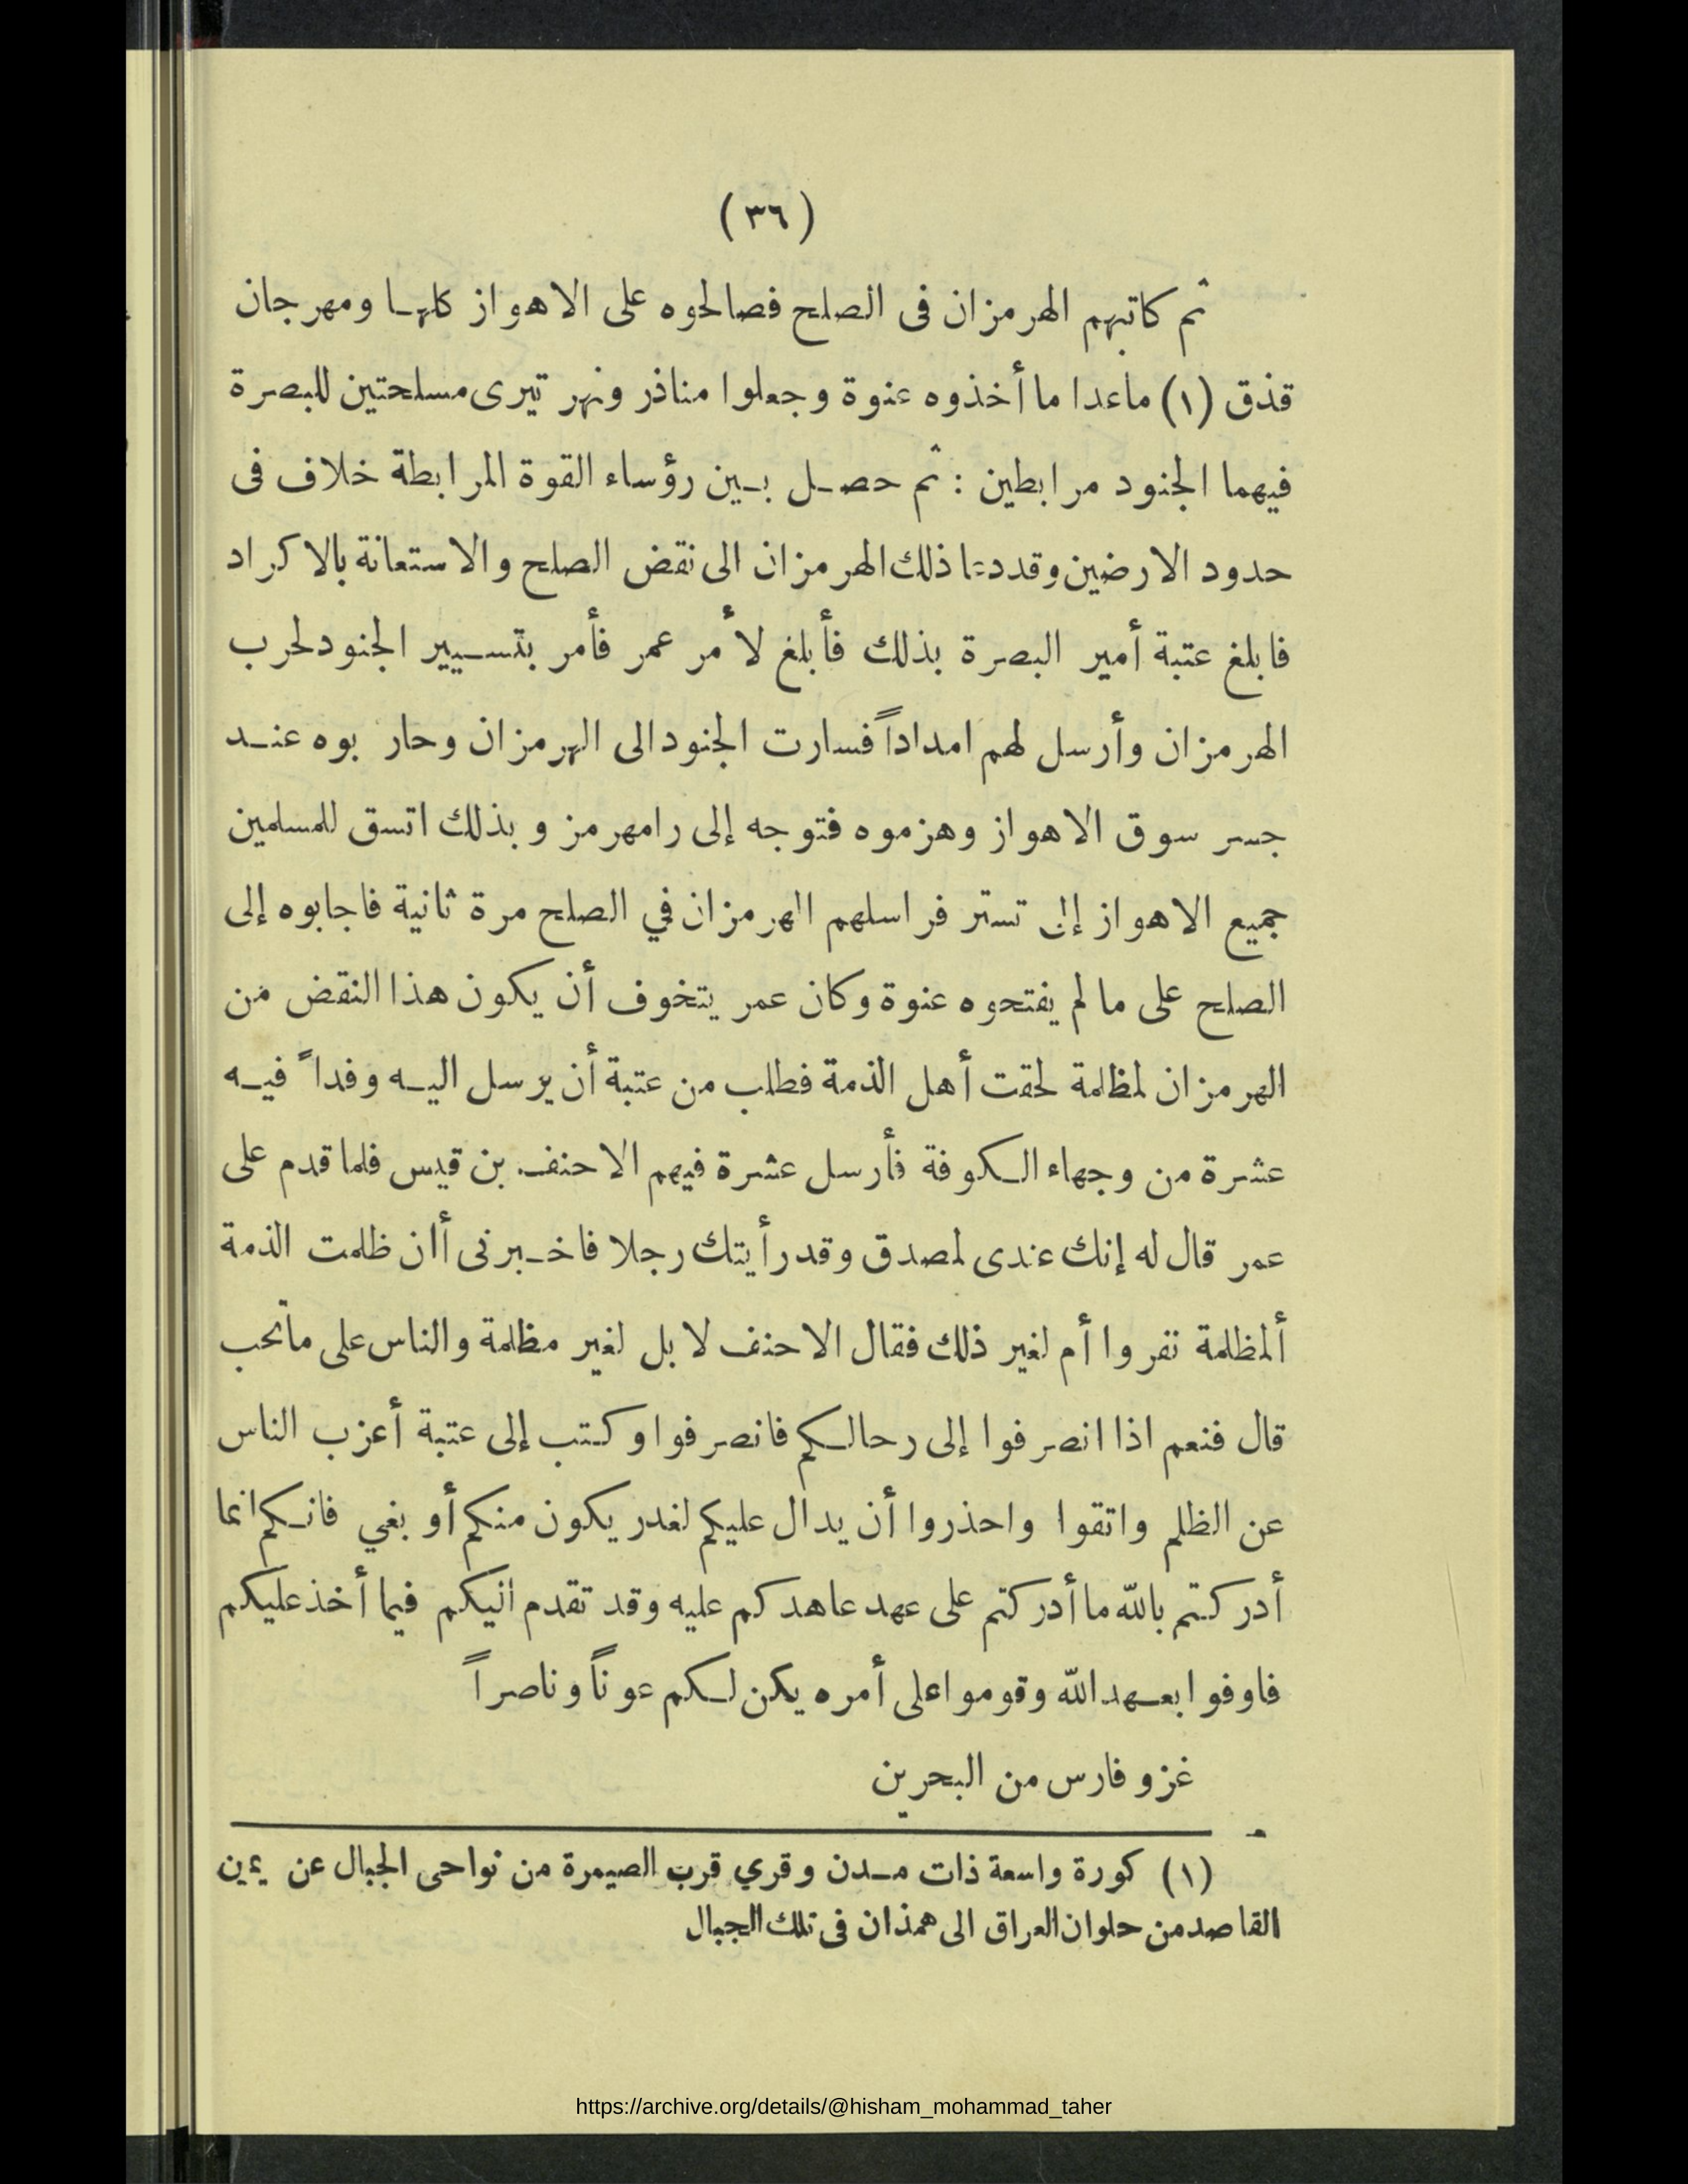 (٣٦)
ثم كاتبهم الهرمزان فى الصلح فصالحوه على الاهواز كلها ومهرجان
قذق (١) ماعدا ما أخذوه عنوة وجعلوا مناذر ونهر تيرى مسلحتين للبصرة
فيهما الجنود مرابطين : ثم حصل بين رؤساء القوة المرابطة خلاف فى
حدود الارضين وقد دعا ذلك الهرمزان الى نقض الصلح والاستعانة بالاكراد
فابلغ عتبة أمير البصرة بذلك فأبلغ لأمر عمر فأمر بتسيير الجنود لحرب
الهرمزان وأرسل لهم امداداً فسارت الجنود الى الهرمزان وحاربوه عند
جسر سوق الاهواز وهزموه فتوجه إلى رامهرمز وبذلك اتسق للمسلمين
جميع الاهواز إلى تستر فراسلهم الهرمزان في الصلح مرة ثانية فاجابوه إلى
الصلح على ما لم يفتحوه عنوة وكان عمر يتخوف أن يكون هذا النقض من
الهرمزان لمظلمة لحقت أهل الذمة فطلب من عتبة أن يرسل اليه وفداً فيه
عشرة من وجهاء الكوفة فأرسل عشرة فيهم الاحنف بن قيس فلما قدم على
عمر قال له إنك عندى لمصدق وقد رأيتك رجلا فاخبرنى أان ظلمت الذمة
ألمظلمة نفروا أم لغير ذلك فقال الاحنف لا بل لغير مظلمة والناس على ماتحب
قال فنعم اذا انصرفوا إلى رحالكم فانصرفوا وكتب إلى عتبة أعزب الناس
عن الظلم واتقوا واحذروا أن يدال عليكم لغدر يكون منكم أو بغي فانكم انما
أدركتم بالله ما أدركتم على عهد عاهدكم عليه وقد تقدم اليكم فيما أخذ عليكم
فاوفوا بعهد الله وقوموا على أمره يكن لكم عوناً وناصراً
غزو فارس من البحرين
(١) كورة واسعة ذات مدن وقري قرب الصيمرة من نواحى الجبال عن يمين
القاصد من حلوان العراق الى همذان فى تلك الجبال
https://archive.org/details/@hisham_mohammad_taher